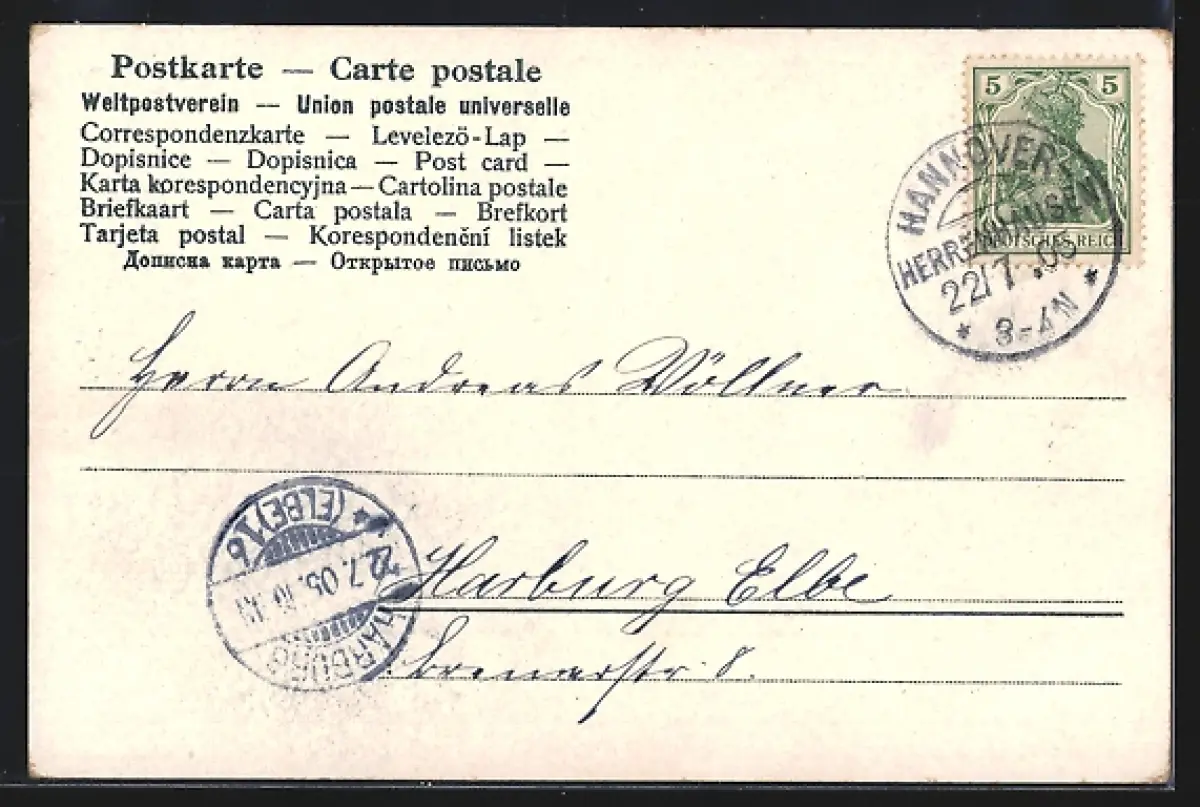 Postkarte — Carte postale
Weltpostverein — Union postale universelle
Correspondenzkarte — Levelező-Lap —
Dopisnice — Dopisnica — Post card —
Karta korespondencyjna — Cartolina postale
Briefkaart — Carta postala — Brefkort
Tarjeta postal — Korespondenční listek
Дописна карта — Открытое письмо
5 5
DEUTSCHES REICH
HANNOVER
HERRENHAUSEN
22/7.05
* 8-9 N *
Herrn Andreas Völlner
Harburg Elbe
Bremerstr. 8.
HARBURG
22.7.05.
(ELBE) 1b